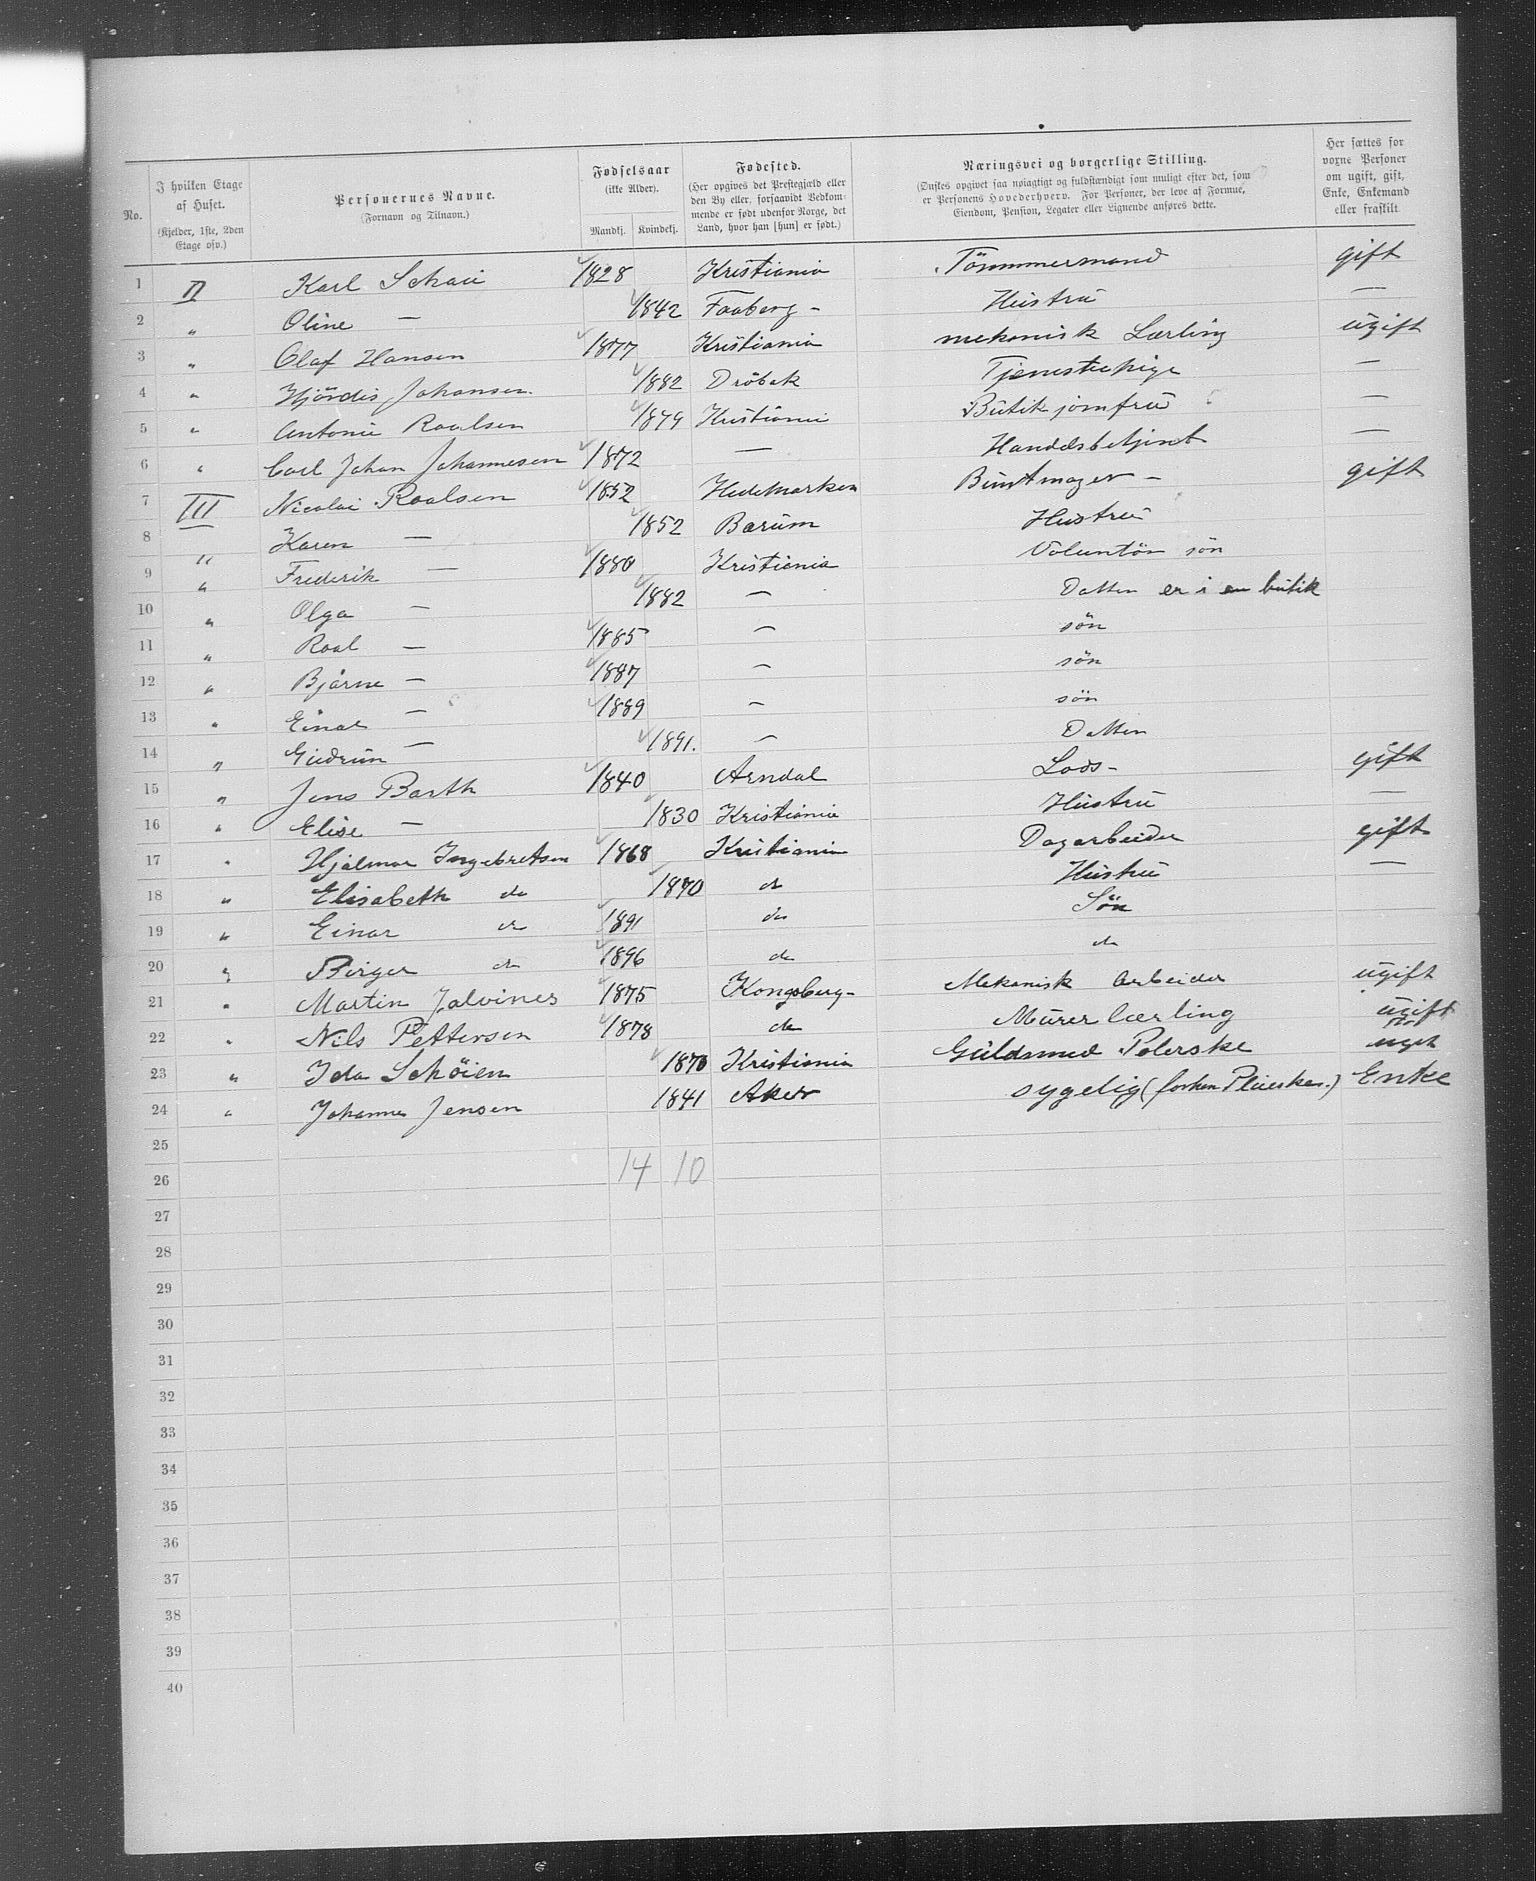 No.
I hvilken Etage af Huset.
(Kjelder, 1ste, 2den Etage osv.)
Personernes Navne.
(Fornavn og Tilnavn.)
Fødselsaar
(ikke Alder).
Mandkj. Kvindekj.
Fødested.
(Her opgives det Prestegjæld eller den By eller, forsaavidt Vedkommende er født udenfor Norge, det Land, hvor han [hun] er født.)
Næringsvei og borgerlige Stilling.
(Ønskes opgivet saa nøiagtigt og fuldstændigt som muligt efter det, som er Personens Hovederhverv. For Personer, der leve af Formue, Eiendom, Pension, Legater eller Lignende anføres dette.
Her sættes for voxne Personer om ugift, gift, Enke, Enkemand eller fraskilt.
1 II Karl Schau 1828 Kristiania Tømmermand gift
2 " Oline — 1842 Faaberg - Hustru —
3 " Olaf Hansen 1877 Kristiania mekanisk Lærling ugift
4 " Hjördis Johansen 1882 Dröbak Tjenestepige —
5 " Antonie Roalsen 1879 Kristiania Butikjomfru —
6 " Carl Johan Johannesen 1872 — Handelsbetjent —
7 III Nicolai Roalsen 1852 Hedemarken Buntmager - gift
8 " Karen — 1852 Bærum Hustru
9 " Frederik — 1880 Kristiania Voluntör sön
10 " Olga — 1882 — Datter er i en butik
11 " Roal — 1885 — sön
12 " Bjarne — 1887 — sön
13 " Einar — 1889 — sön
14 " Gudrun — 1891. — Datter
15 " Jens Barth 1840 Arndal Lods- gift
16 " Elise — 1830 Kristiania Hustru —
17 " Hjalmar Ingebretsen 1868 Kristiania Dagarbeider gift
18 " Elisabeth do 1870 do Hustru —
19 " Einar do 1891 do Sön
20 " Birger do 1896 do do
21 " Martin Jalvines 1875 Kongsberg- Mekanisk arbeider ugift
22 " Nils Pettersen 1878 do Murer lærling ugift
23 " Ida Schöien 1870 Kristiania Guldsmed Polerske ugift
24 " Johanne Jensen 1841 Aker sygelig Enke
25
26 14 10
27
28
29
30
31
32
33
34
35
36
37
38
39
40